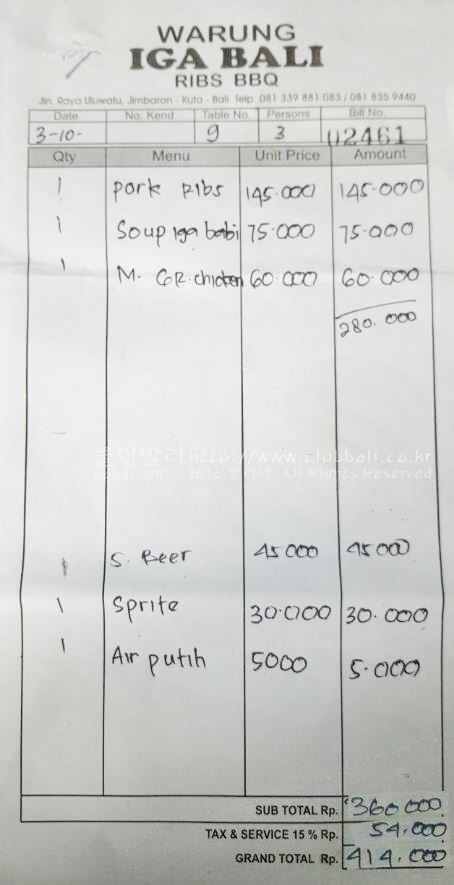 WARUNG
IGA BALI
RIBS BBQ
Jln. Raya Uluwatu, Jimbaran - Kuta - Bali Telp. 081 339 881 083 / 081 835 9440
Date No. Kend Table No. Persons Bill No.
3-10- 9 3 02461
Qty Menu Unit Price Amount
1 Pork Ribs 145.000 145.000
1 Soup iga babi 75.000 75.000
1 M. GR. chicken 60.000 60.000
280.000
클럽발리 http://www.clubbali.co.kr
Copyright 2016. All Rights Reserved
1 S. Beer 45000 45000
1 Sprite 30.000 30.000
1 Air putih 5000 5.000
SUB TOTAL Rp. 360000
TAX & SERVICE 15 % Rp. 54.000
GRAND TOTAL Rp. 414.000